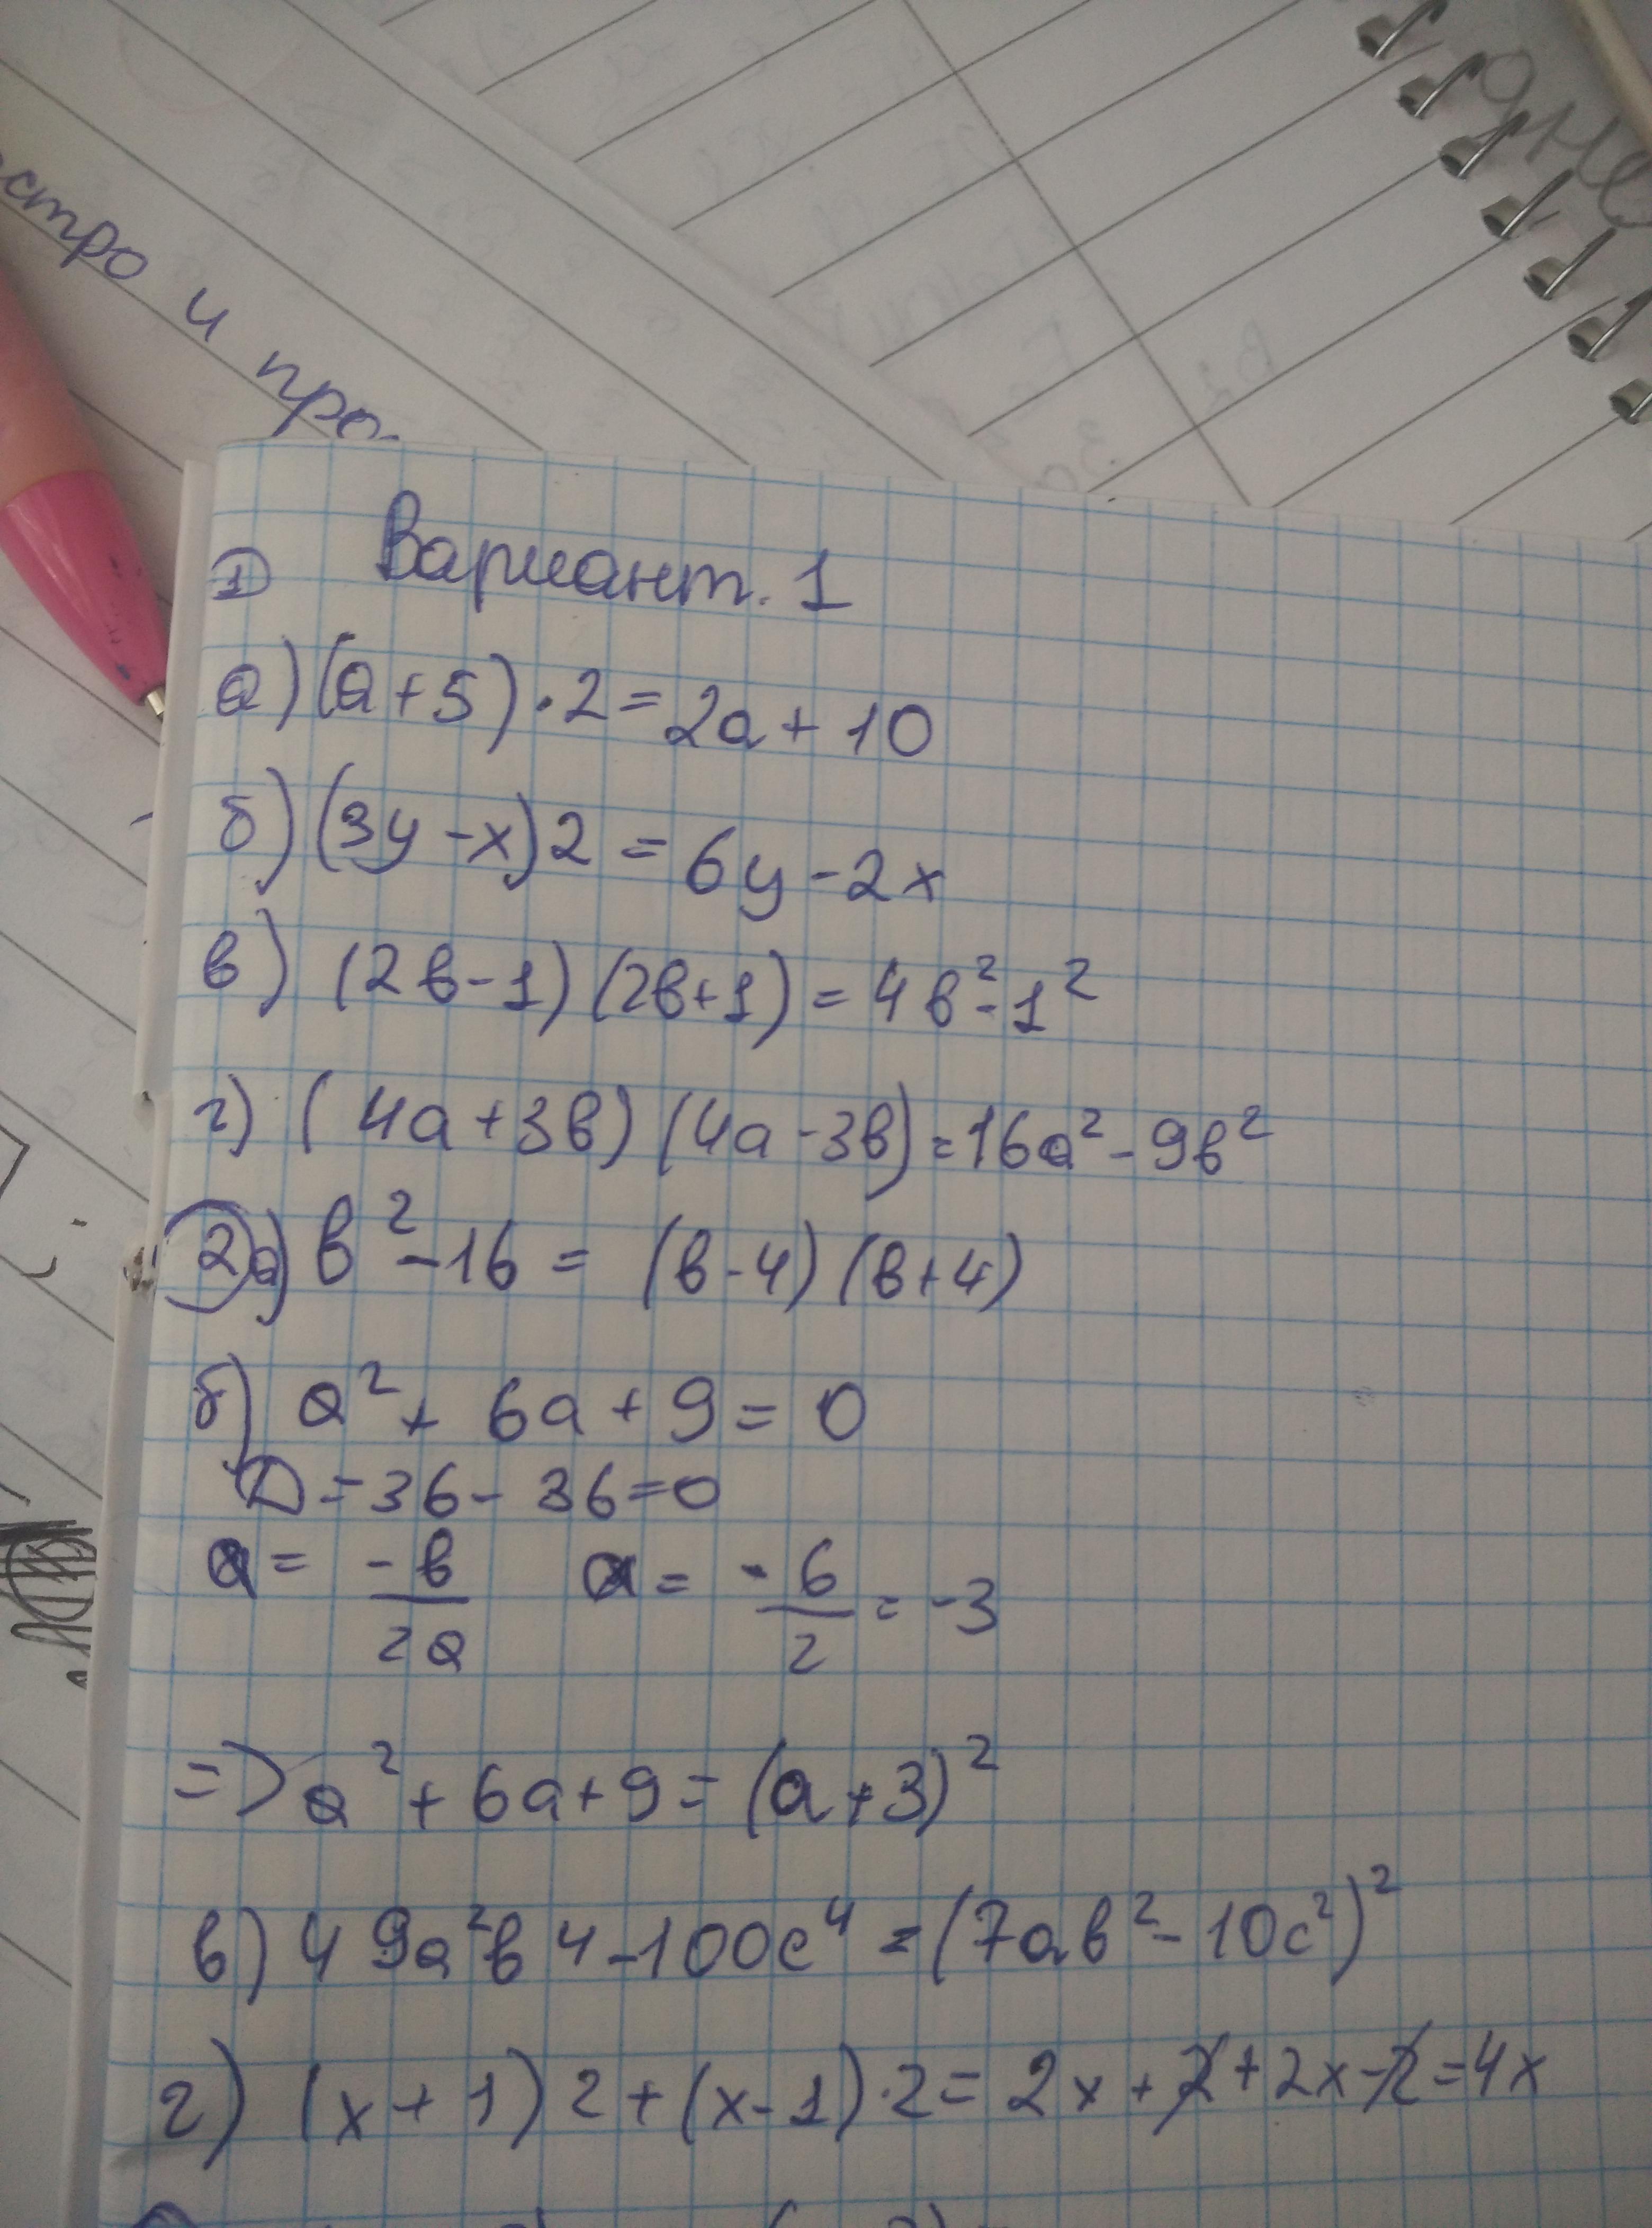 стро и про-
Дне
1 Вариант. 1
а) (a+5)·2=2a+10
б) (3y-x)2=6y-2x
в) (2в-1)(2в+1)=4в²-1²
г) (4a+3в)(4a-3в)=16a²-9в²
2 а) в²-16=(в-4)(в+4)
б) a²+6a+9=0
D=36-36=0
a=-в/2a a=-6/2=-3
=> a²+6a+9=(a+3)²
в) 49a²в4-100c⁴=(7aв²-10c²)²
г) (x+1)2+(x-1)·2=2x+2+2x-2=4x